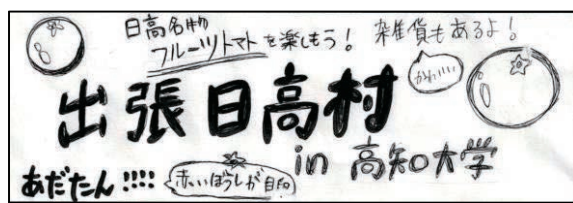 日高名物
フルーツトマトを楽しもう！
雑貨もあるよ！
かわいい
出張日高村
in 高知大学
あだたん!!!!
赤いぼうしが目印